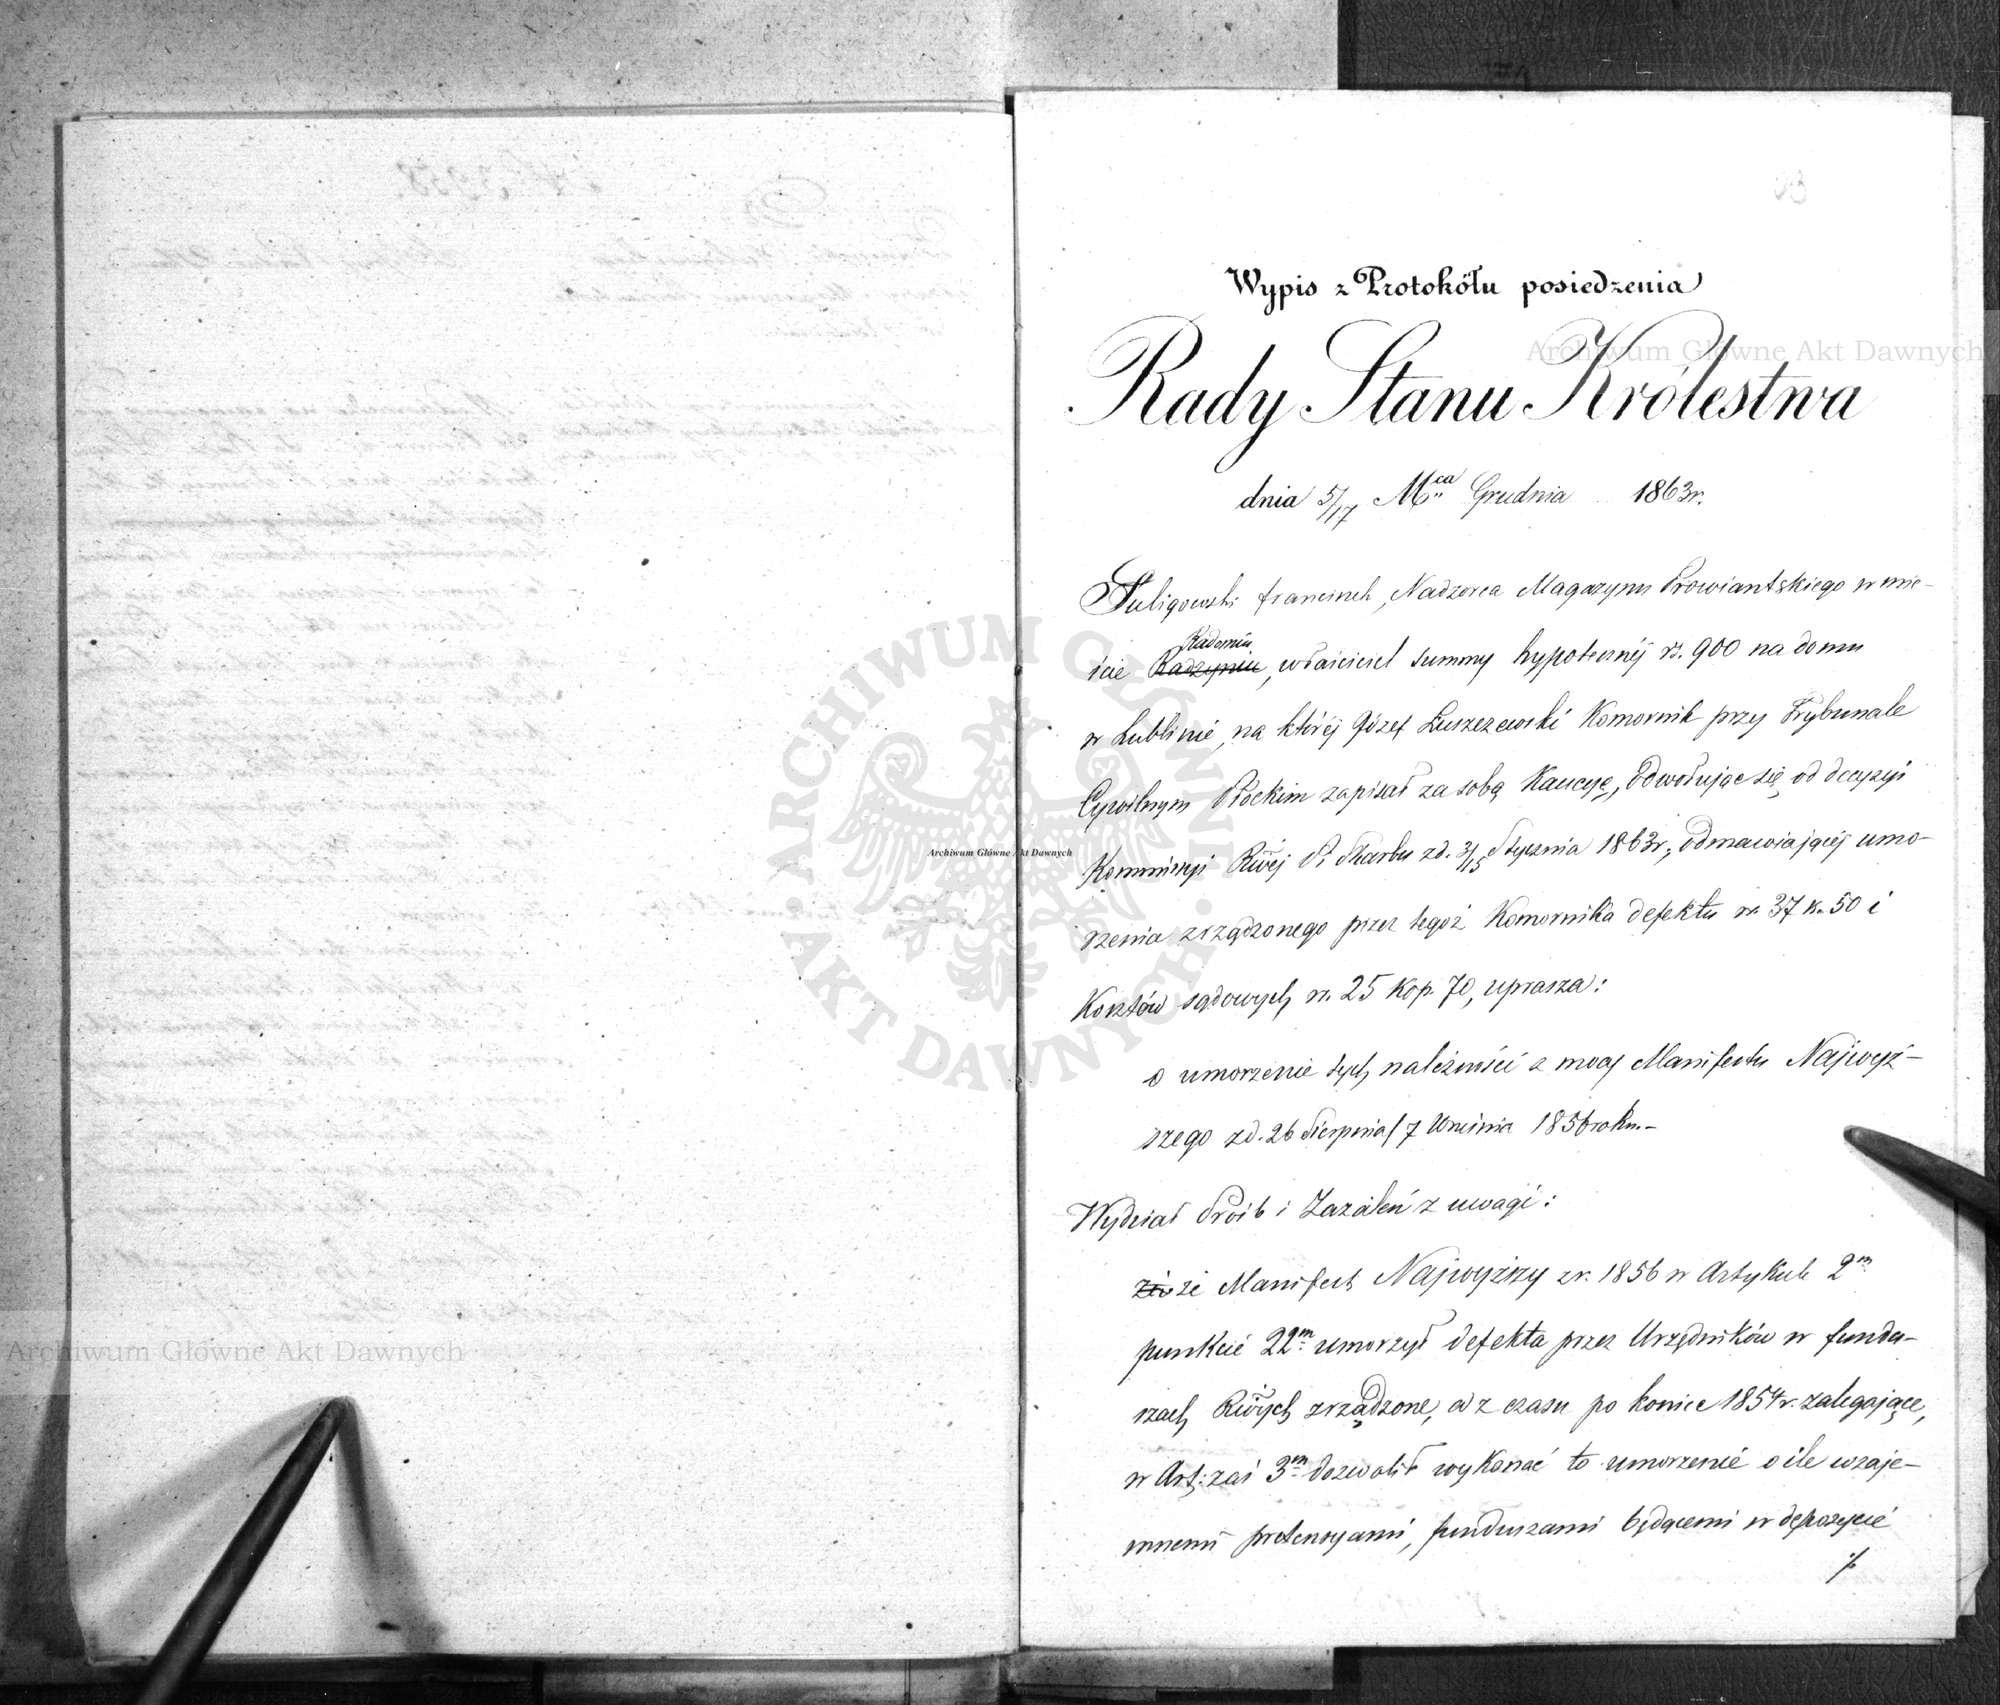 Wypis z Protokółu posiedzenia
Rady Stanu Królestwa
dnia 5/17 Mca Grudnia 1863r.
Suligowski Franciszek, Nadzorca Magazynu Prowiantskiego w mie-
Radomiu
ście Radzyniu, właściciel summy hypotecznéj rs. 900 na domu
w Lublinie, na któréj Józef Łuszczewski Komornik przy Trybunale
Cywilnym Płockim zapisał za sobą Kaucyę, odwołując się od decyzyi
Kommissyi Rwéj P. i Skarbu z d. 3/15 Stycznia 1863r., odmawiającéj umo-
rzenia zrządzonego przez tegoż Komornika defektu rs. 37 k. 50 i
Kosztów sądowych rs. 25 kop. 70, uprasza:
o umorzenie tych należności z mocy Manifestu Najwyż-
szego z d. 26 Sierpnia/7 Września 1856 roku.-
Wydział Próśb i Zażaleń z uwagi:
że że Manifest Najwyższy z r. 1856 w Artykule 2m
punkcie 22m umorzył defekta przez Urzędników w fundu-
szach Rwych zrządzone, a z czasu po koniec 1854r. zalegające,
w Art: zaś 3m dozwolił wykonać to umorzenie o ile wzaje-
mnemi pretensyami, funduszami będącemi w depozycie
./.
Archiwum Główne Akt Dawnych
Archiwum Główne Akt Dawnych
Archiwum Główne Akt Dawnych
ARCHIWUM GŁÓWNE · AKT DAWNYCH ·